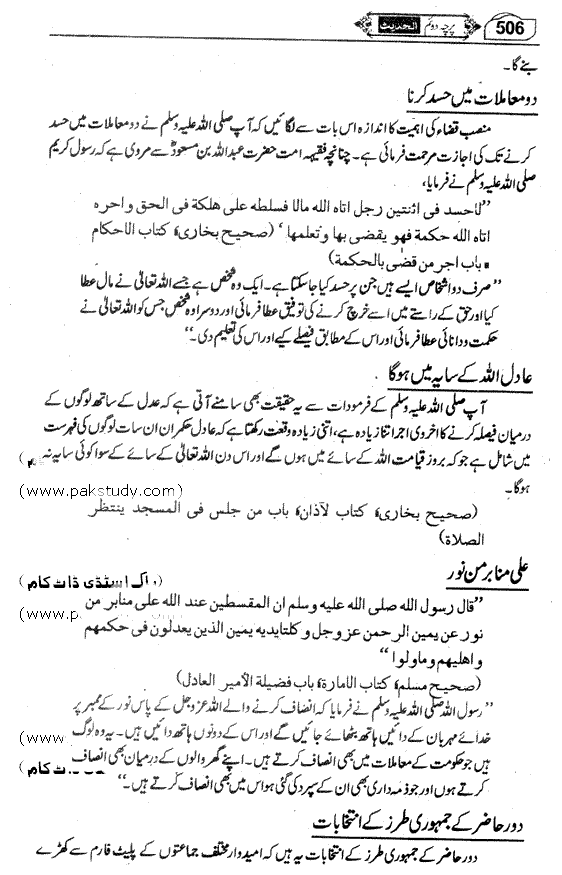 506 الحدیث پرچہ دوئم
بنے گا۔
دو معاملات میں حسد کرنا
منصب قضاء کی اہمیت کا اندازہ اس بات سے لگائیں کہ آپ صلی اللہ علیہ وسلم نے دو معاملات میں حسد
کرنے تک کی اجازت مرحمت فرمائی ہے۔ چنانچہ فقیہہ امت حضرت عبداللہ بن مسعودؓ سے مروی ہے کہ رسول کریم
صلی اللہ علیہ وسلم نے فرمایا،
”لاحسد فی اثنتین رجل اتاہ اللہ مالا فسلطہ علی ھلکۃ فی الحق واخرہ
اتاہ اللہ حکمۃ فھو یقضی بھا وتعلمھا‘ (صحیح بخاری، کتاب الاحکام
باب اجر من قضی بالحکمۃ)
”صرف دو اشخاص ایسے ہیں جن پر حسد کیا جاسکتا ہے۔ ایک وہ شخص ہے جسے اللہ تعالیٰ نے مال عطا
کیا اور حق کے راستے میں اسے خرچ کرنے کی توفیق عطا فرمائی اور دوسرا وہ شخص جس کو اللہ تعالیٰ نے
حکمت و دانائی عطا فرمائی اور اس کے مطابق فیصلے کیے اور اس کی تعلیم دی۔“
عادل اللہ کے سایہ میں ہوگا
آپ صلی اللہ علیہ وسلم کے فرمودات سے یہ حقیقت بھی سامنے آتی ہے کہ عدل کے ساتھ لوگوں کے
درمیان فیصلہ کرنے کا اخروی اجر اتنا زیادہ ہے، اتنی زیادہ وقعت رکھتا ہے کہ عادل حکمران ان سات لوگوں کی فہرست
میں شامل ہے جو کہ بروز قیامت اللہ کے سائے میں ہوں گے اور اس دن اللہ تعالیٰ کے سائے کے سوا کوئی سایہ نہ
ہوگا۔
(www.pakstudy.com)
(صحیح بخاری، کتاب لاذان، باب من جلس فی المسجد ینتظر
الصلاۃ)
علی منابر من نور
اک اسٹڈی ڈاٹ کام)
”قال رسول اللہ صلی اللہ علیہ وسلم ان المقسطین عند اللہ علی منابر من
(www.p
نور عن یمین الرحمن عزوجل وکلتایدیہ یمین الذین یعدلون فی حکمھم
واھلیھم وماولوا“
(صحیح مسلم، کتاب الامارۃ، باب فضیلۃ الأمیر العادل)
”رسول اللہ صلی اللہ علیہ وسلم نے فرمایا کہ انصاف کرنے والے اللہ عزوجل کے پاس نور کے ممبر پر
خدائے مہربان کے دائیں ہاتھ بٹھائے جائیں گے اور اس کے دونوں ہاتھ دائیں ہیں۔ یہ وہ لوگ
(www
ہیں جو حکومت کے معاملات میں بھی انصاف کرتے ہیں۔ اپنے گھر والوں کے درمیان بھی انصاف
ڈاٹ کام)
کرتے ہوں اور جو ذمہ داری بھی ان کے سپرد کی گئی ہو اس میں بھی انصاف کرتے ہیں۔“
دور حاضر کے جمہوری طرز کے انتخابات
دور حاضر کے جمہوری طرز کے انتخابات یہ ہیں کہ امیدوار مختلف جماعتوں کے پلیٹ فارم سے کھڑے